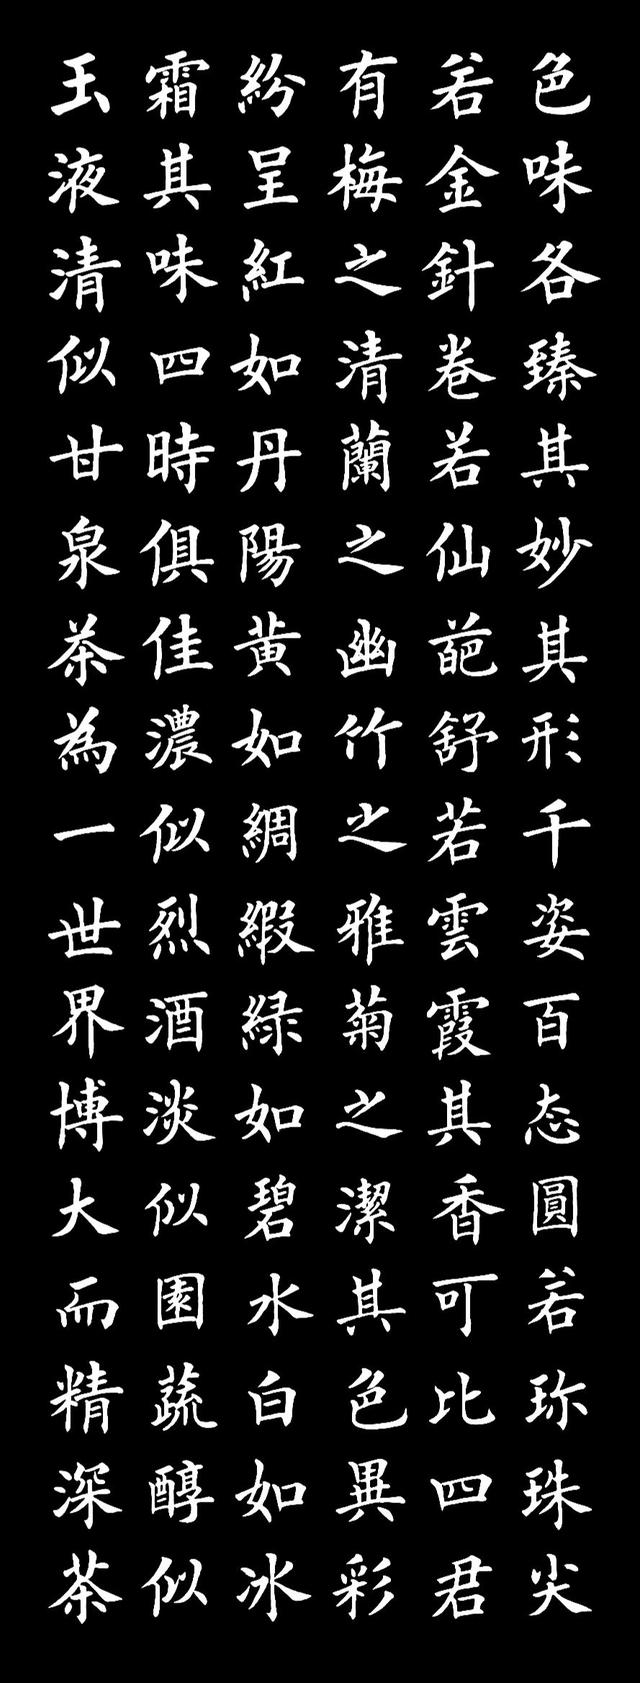 色味各臻其妙其形千姿百态圓若珎珠尖
若金針卷若仙葩舒若雲霞其香可比四君
有梅之清蘭之幽竹之雅菊之潔其色異彩
紛呈紅如丹陽黄如綢緞緑如碧水白如冰
霜其味四時俱佳濃似烈酒淡似園蔬醇似
玉液清似甘泉茶為一世界博大而精深茶